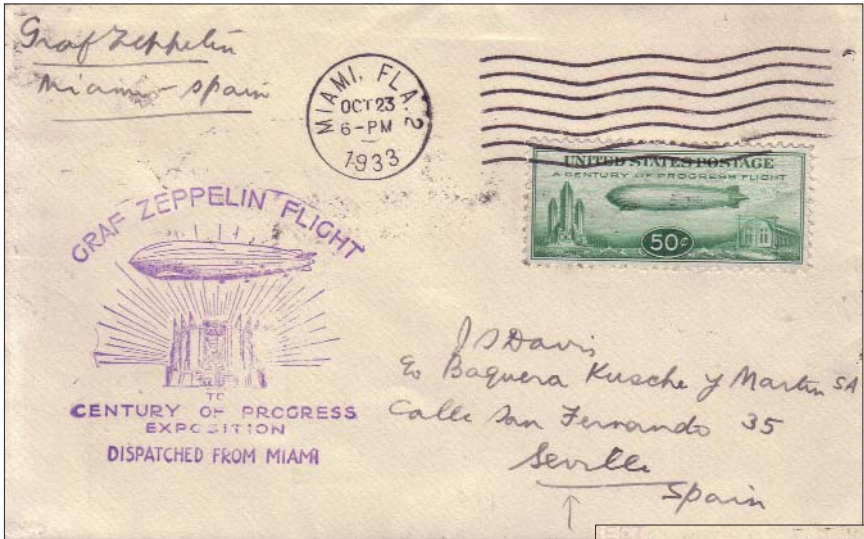 Graf Zeppelin
Miami - Spain
MIAMI, FLA. 2
OCT 23
6 - PM
1933
UNITED STATES POSTAGE
A CENTURY OF PROGRESS FLIGHT
50¢
GRAF ZEPPELIN FLIGHT
TO
CENTURY OF PROGRESS
EXPOSITION
DISPATCHED FROM MIAMI
J S Davis
c/o Baquera Kusche y Martin SA
Calle San Fernando 35
Seville
Spain